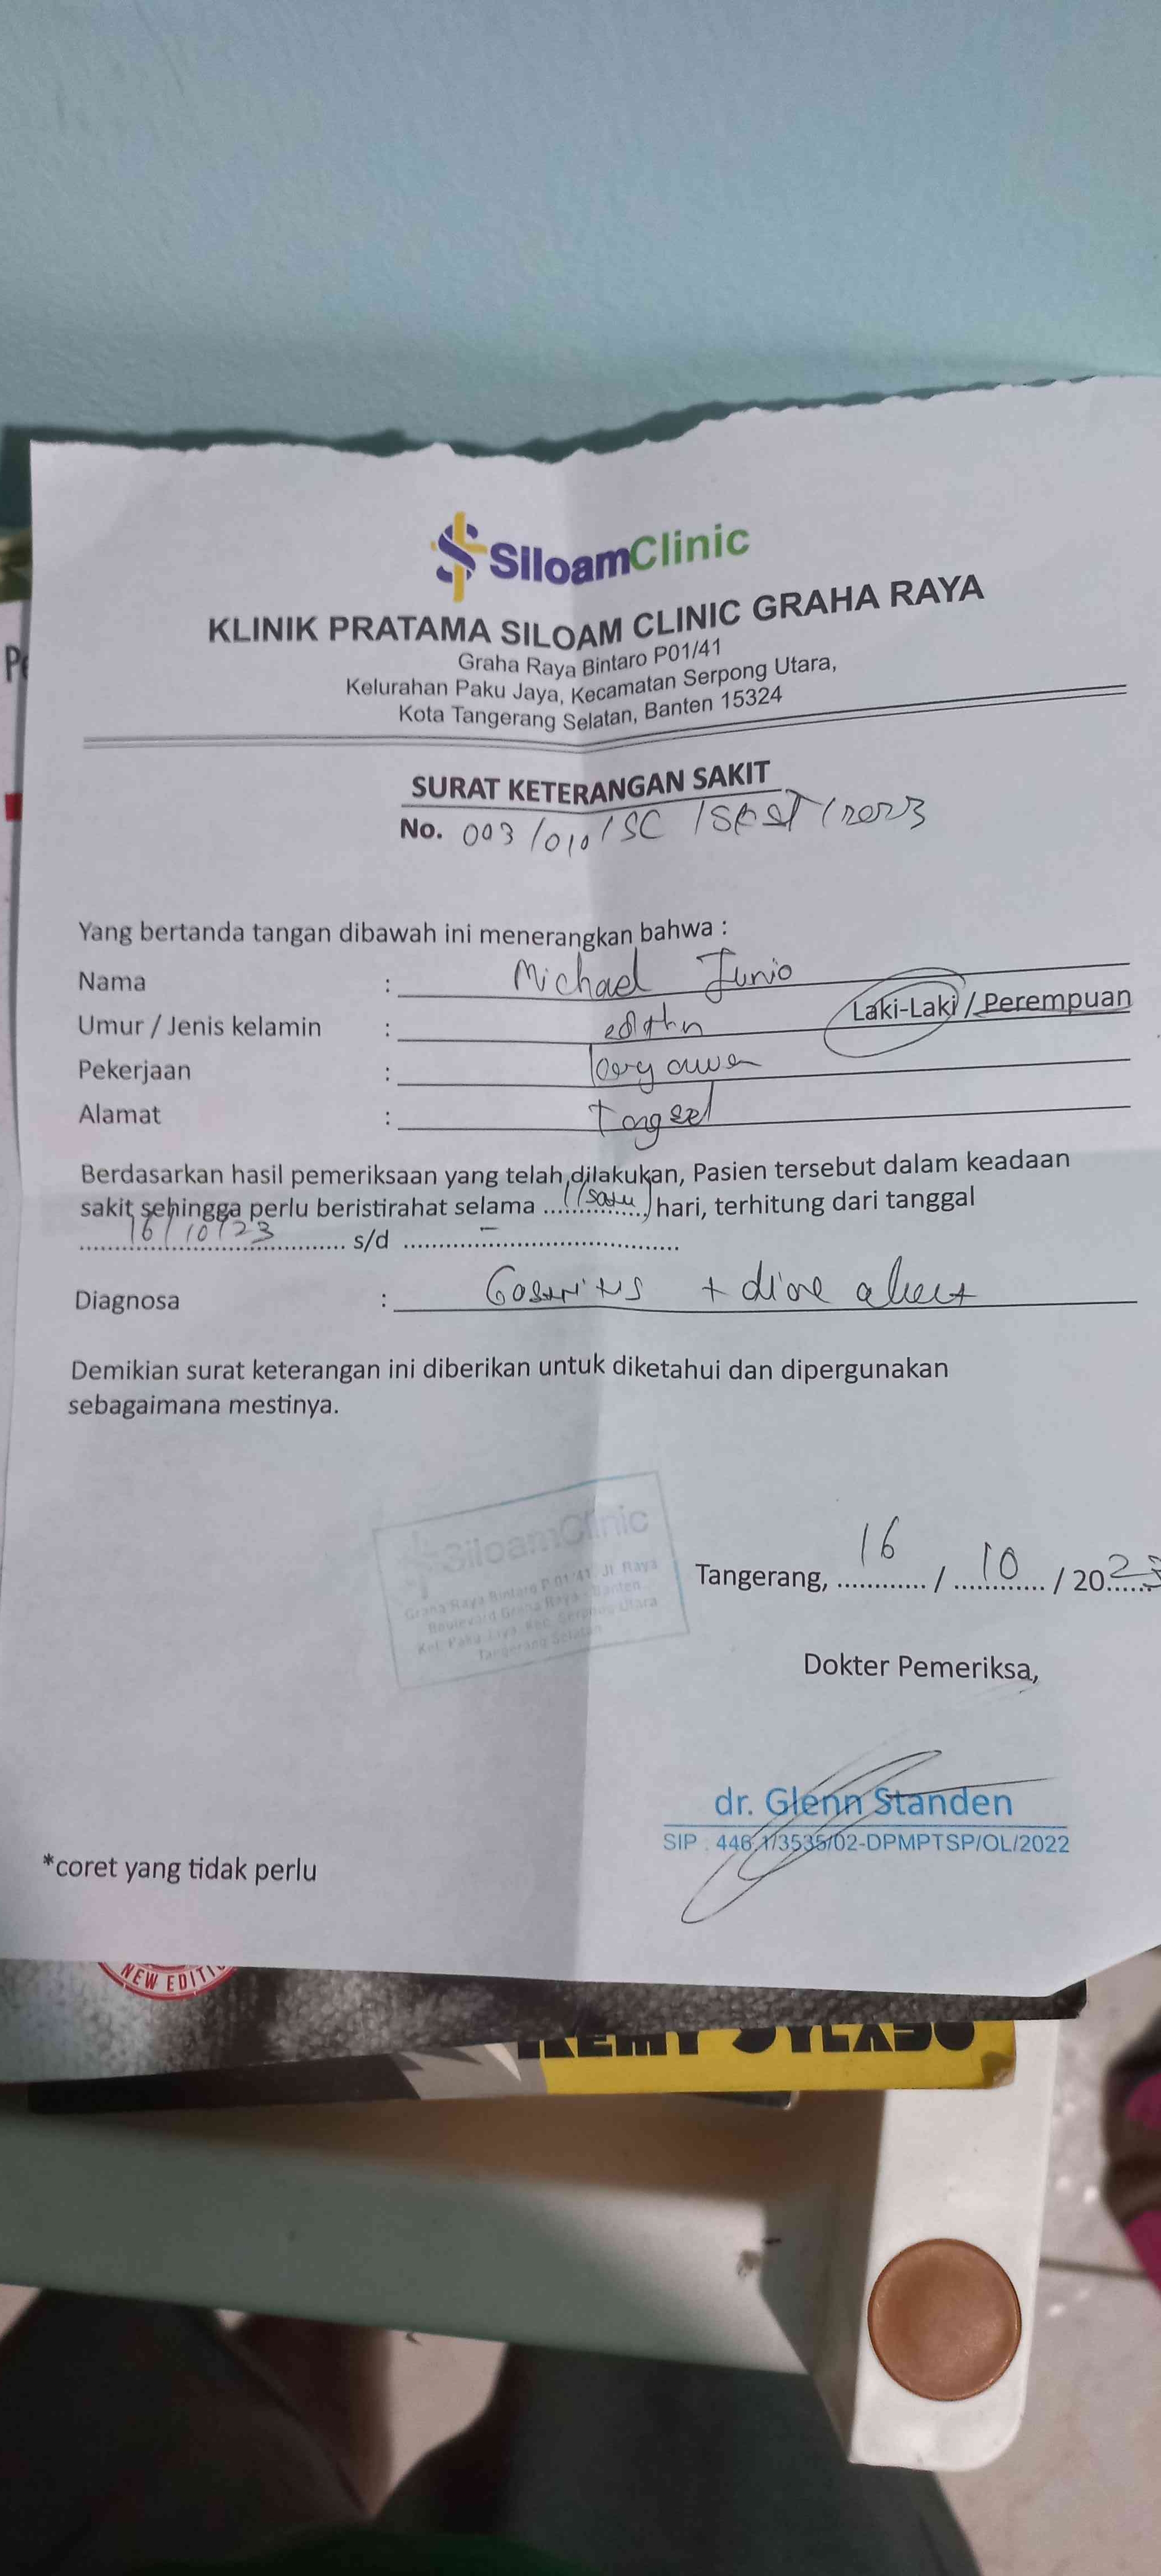 SiloamClinic
KLINIK PRATAMA SILOAM CLINIC GRAHA RAYA
Graha Raya Bintaro P01/41
Kelurahan Paku Jaya, Kecamatan Serpong Utara,
Kota Tangerang Selatan, Banten 15324
SURAT KETERANGAN SAKIT
No. 003/010/SC /SKST/2023
Yang bertanda tangan dibawah ini menerangkan bahwa :
Nama : Michael Junio
Umur / Jenis kelamin : Laki-Laki / Perempuan
Pekerjaan :
Alamat : Tangsel
Berdasarkan hasil pemeriksaan yang telah dilakukan, Pasien tersebut dalam keadaan
sakit sehingga perlu beristirahat selama 1 (satu) hari, terhitung dari tanggal
16/10/23 s/d -
Diagnosa : Gastritis + diare akut
Demikian surat keterangan ini diberikan untuk diketahui dan dipergunakan
sebagaimana mestinya.
SiloamClinic
Graha Raya Bintaro P 01/41 Jl Raya
Boulevard Graha Raya - Banten
Kel. Paku Jaya, Kec. Serpong Utara
Tangerang Selatan
Tangerang, 16 / 10 / 2023
Dokter Pemeriksa,
dr. Glenn Standen
SIP . 446.1/3535/02-DPMPTSP/OL/2022
*coret yang tidak perlu
NEW EDITI